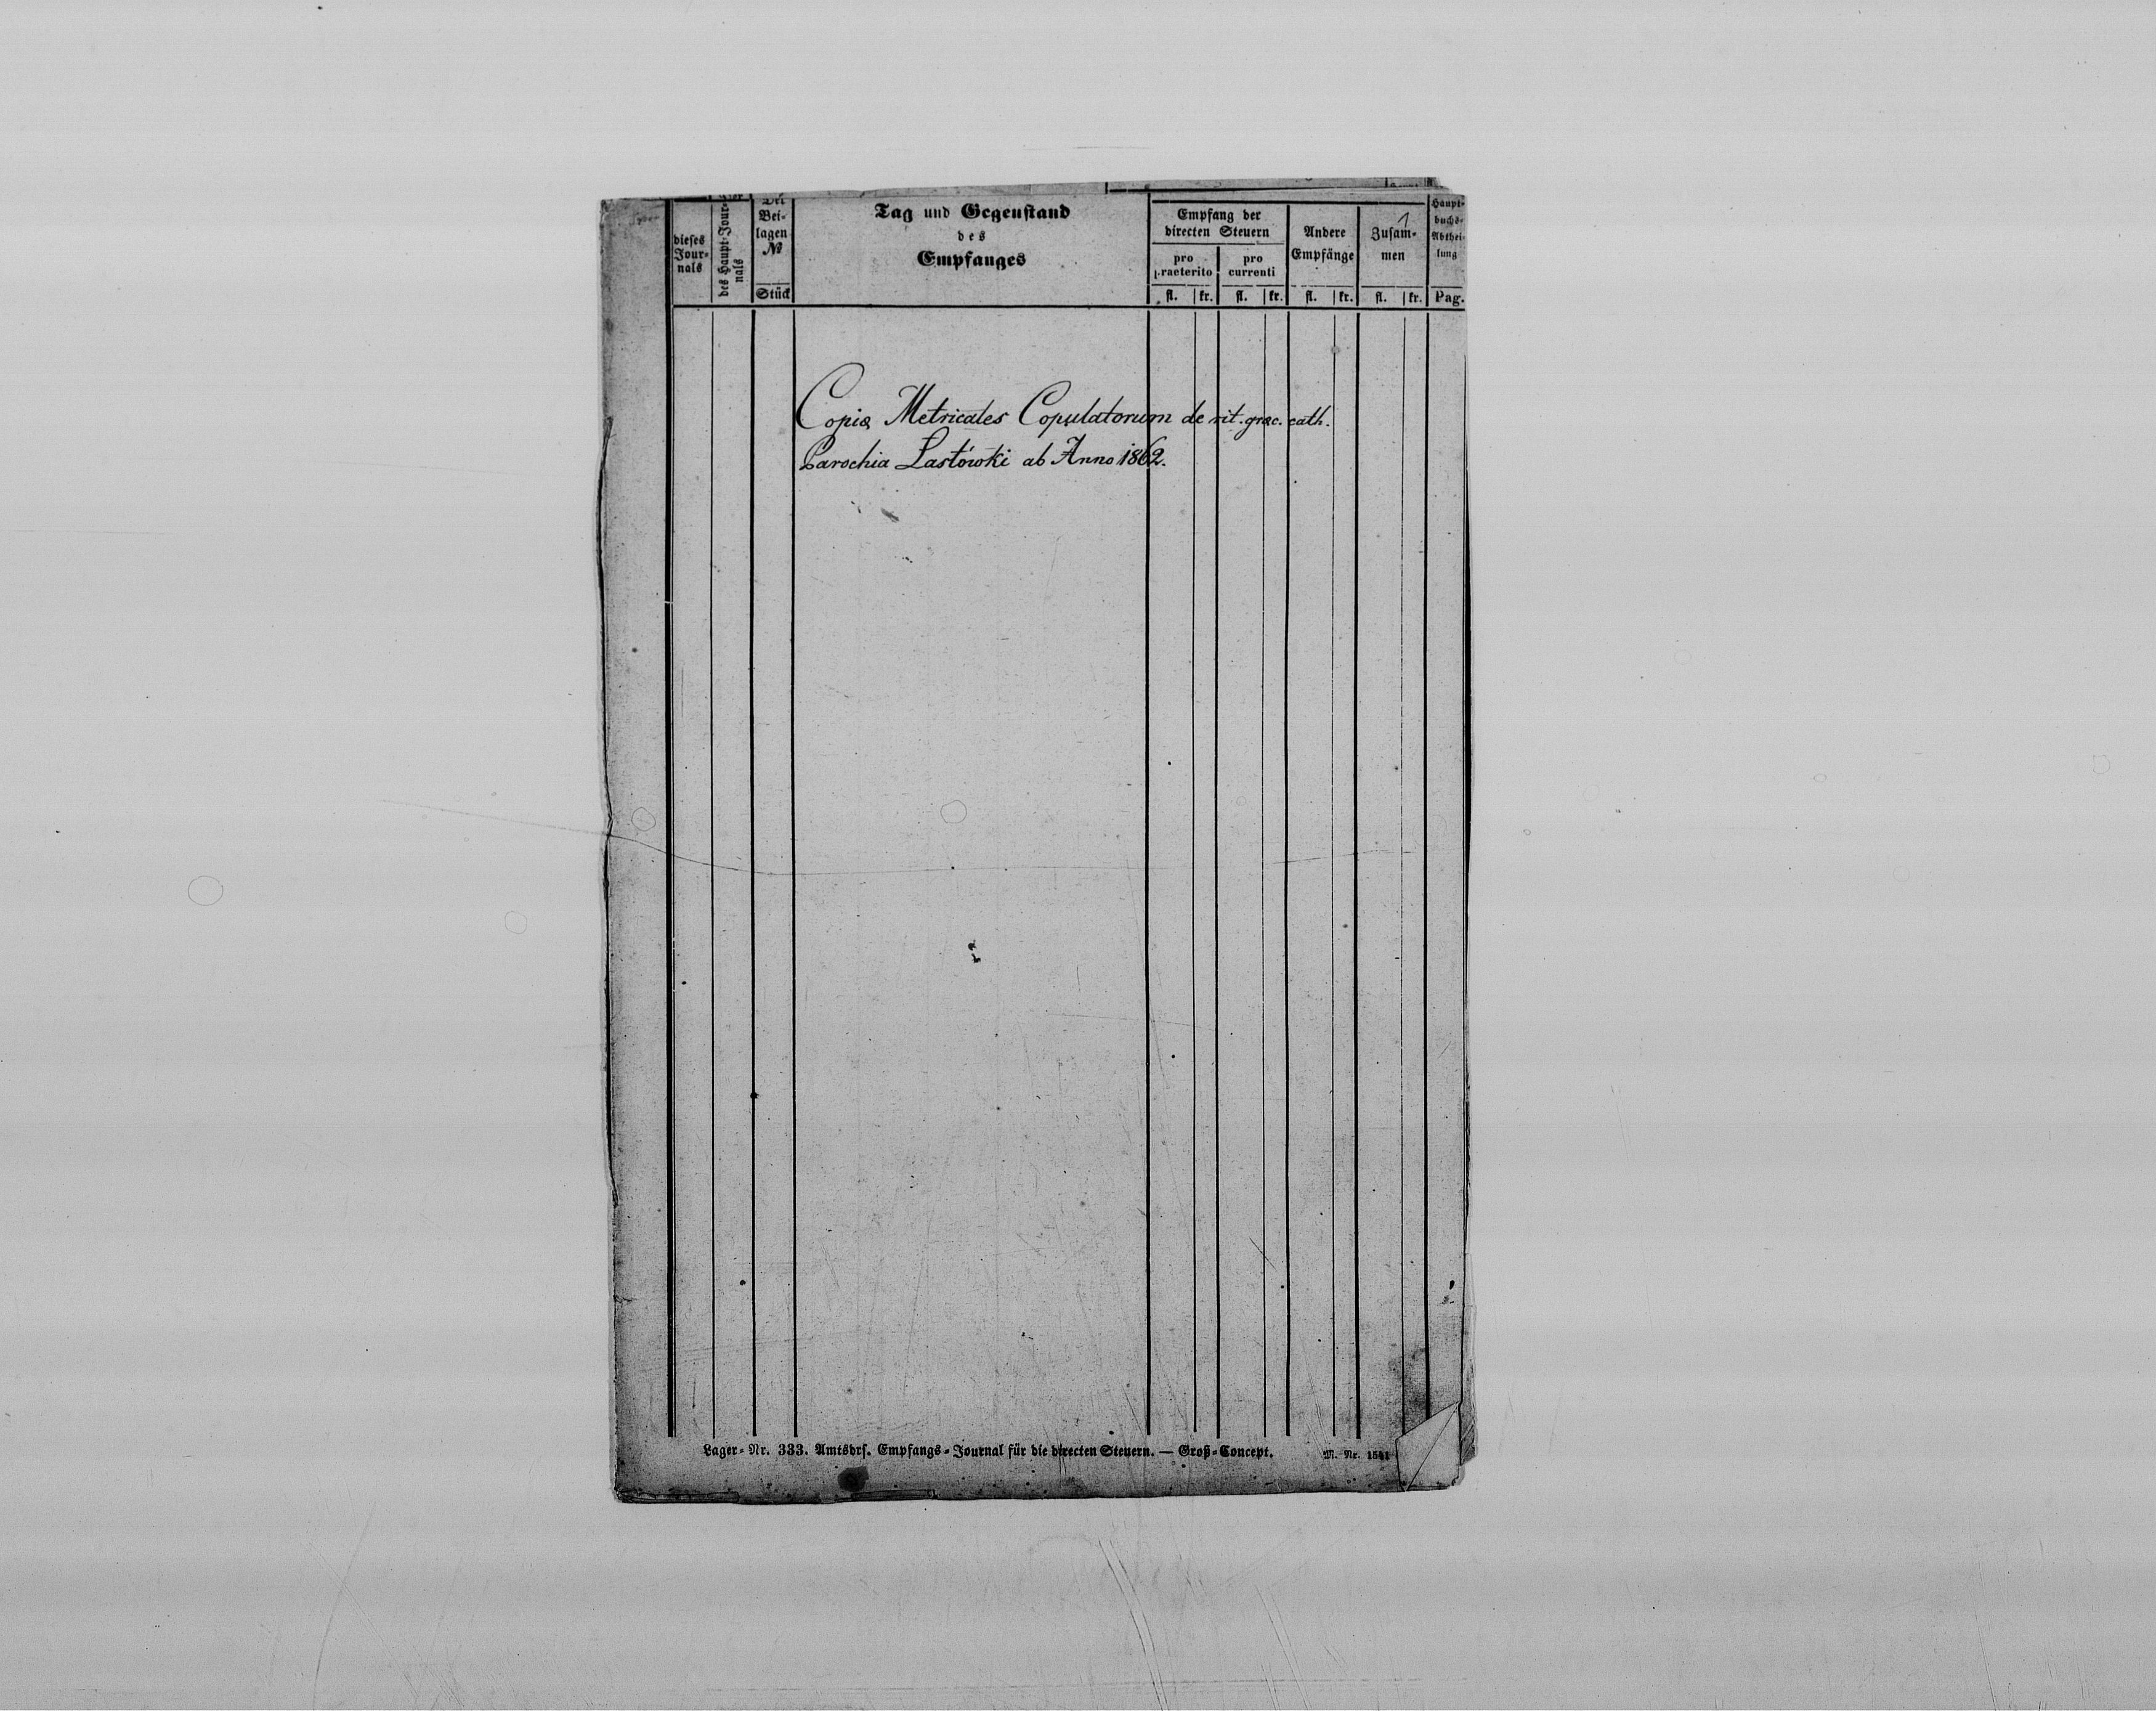 dieses
Jour-
nals
des Haupt-Jour-
nals
Der
Bei-
lagen
№
Stück
Tag und Gegenstand
des
Empfanges
Empfang der
directen Steuern
pro
praeterito
pro
currenti
Andere
Empfänge
1
Zusam-
men
Haupt-
buchs-
Abthei-
lung
fl. kr. fl. kr. fl. kr. fl. kr. Pag.
Copia Metricales Copulatorum de rit. græc. cath.
Parochia Lastówki ab Anno 1862.
Lager-Nr. 333. Amtsdrs. Empfangs-Journal für die directen Steuern. — Groß-Concept. M. Nr. 1541